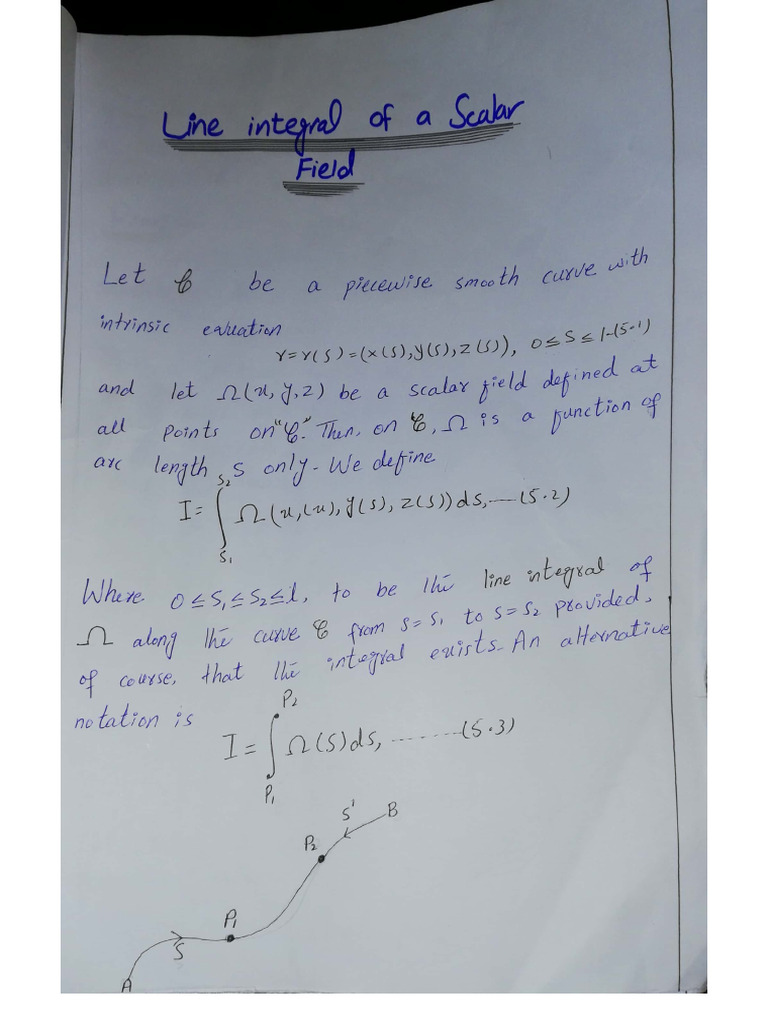 Line integral of a Scalar
Field
Let C be a piecewise smooth curve with
intrinsic equation
r=r(s)=(x(s),y(s),z(s)), 0≤s≤l-(5.1)
and let Ω(x,y,z) be a scalar field defined at
all points on "C". Then, on C, Ω is a function of
arc length s only. We define
I = ∫ₛ₁^s₂ Ω(x,(x),y(s),z(s))ds,----(5.2)
Where 0≤s₁≤s₂≤l, to be the line integral of
Ω along the curve C from s=s₁ to s=s₂ provided,
of course, that the integral exists. An alternative
notation is
I = ∫P₁^P₂ Ω(s)ds, --------(5.3)
s' B
P₂
P₁
s
A